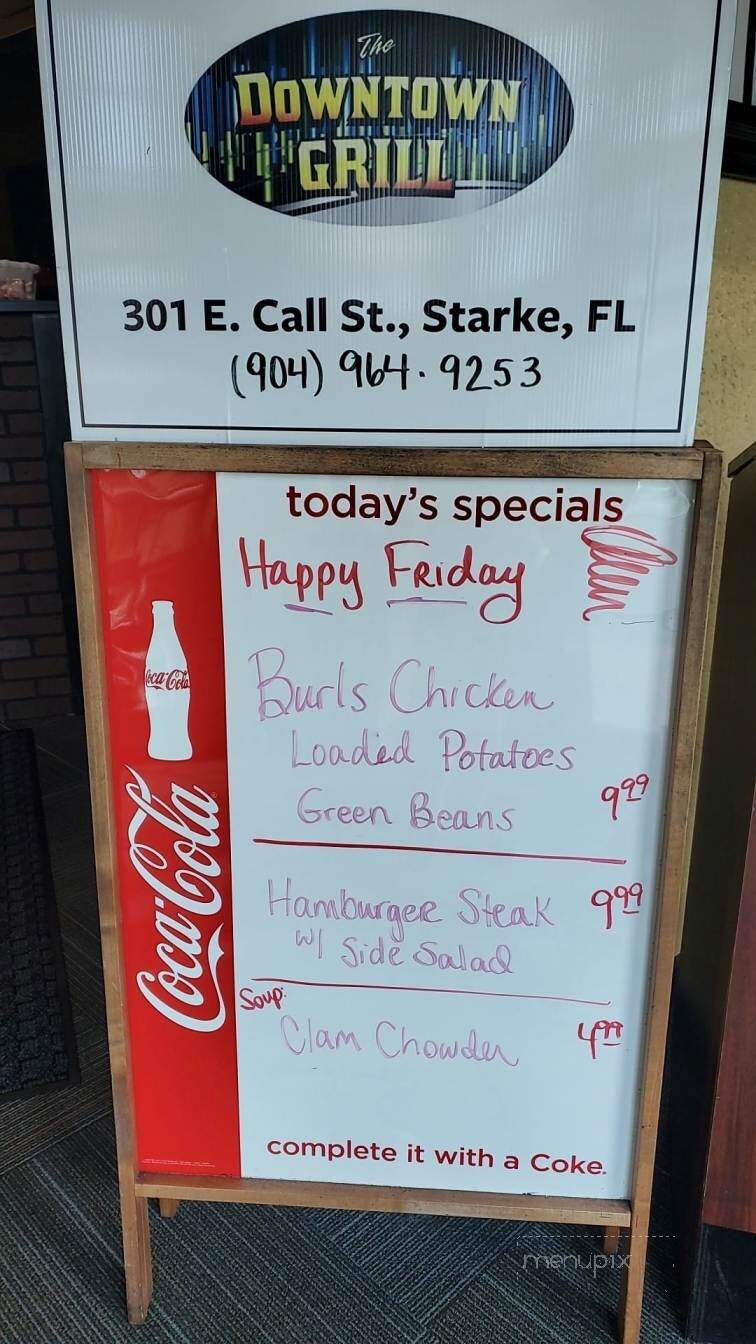 The
DOWNTOWN
GRILL
301 E. Call St., Starke, FL
(904) 964.9253
today's specials
Happy Friday
Burls Chicken
Loaded Potatoes
Green Beans 9.99
Hamburger Steak 9.99
w/ Side Salad
Soup:
Clam Chowder 4.99
complete it with a Coke.
Coca-Cola
Coca-Cola
menupix